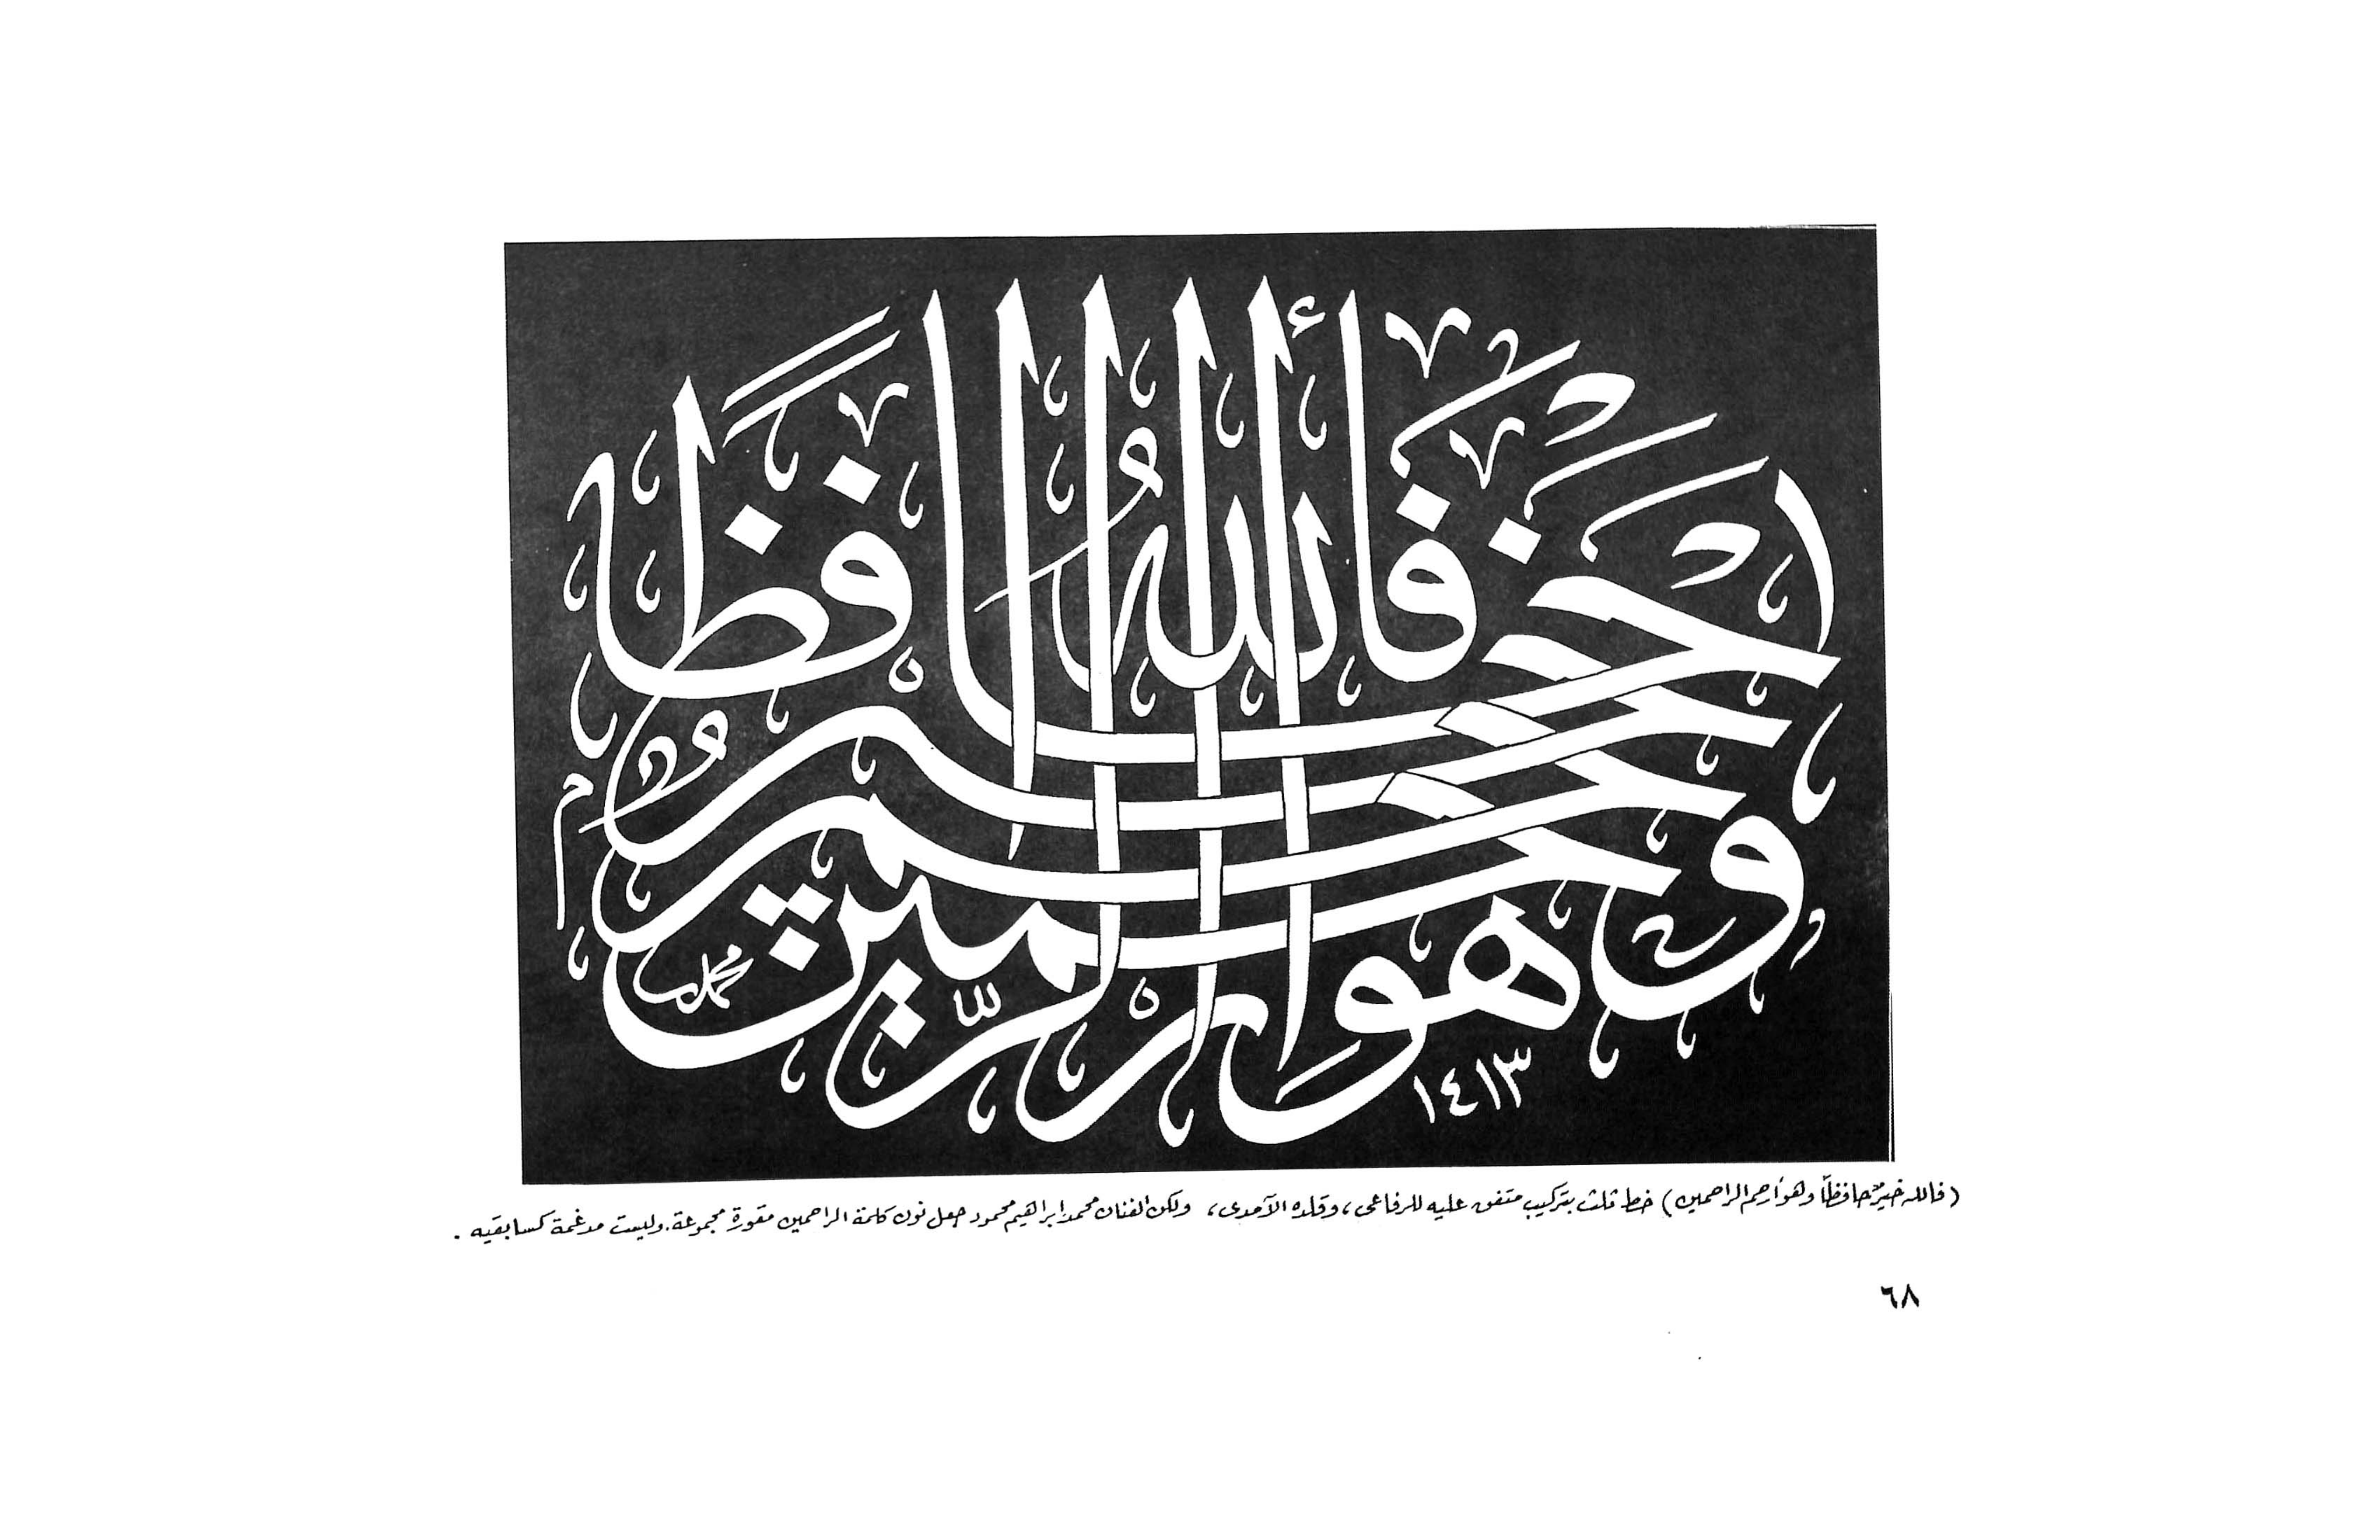 فالله خير حافظًا وهو أرحم الراحمين
محمد
١٤١٣
(فالله خيرٌ حافظًا وهو أرحم الراحمين) خط ثلث بتركيب متفق عليه للرفاعى، وقلده الآمدى، ولكن الفنان محمد إبراهيم محمود جعل نون كلمة الراحمين مقورة مجموعة. وليست مدغمة كسابقيه.
٦٨